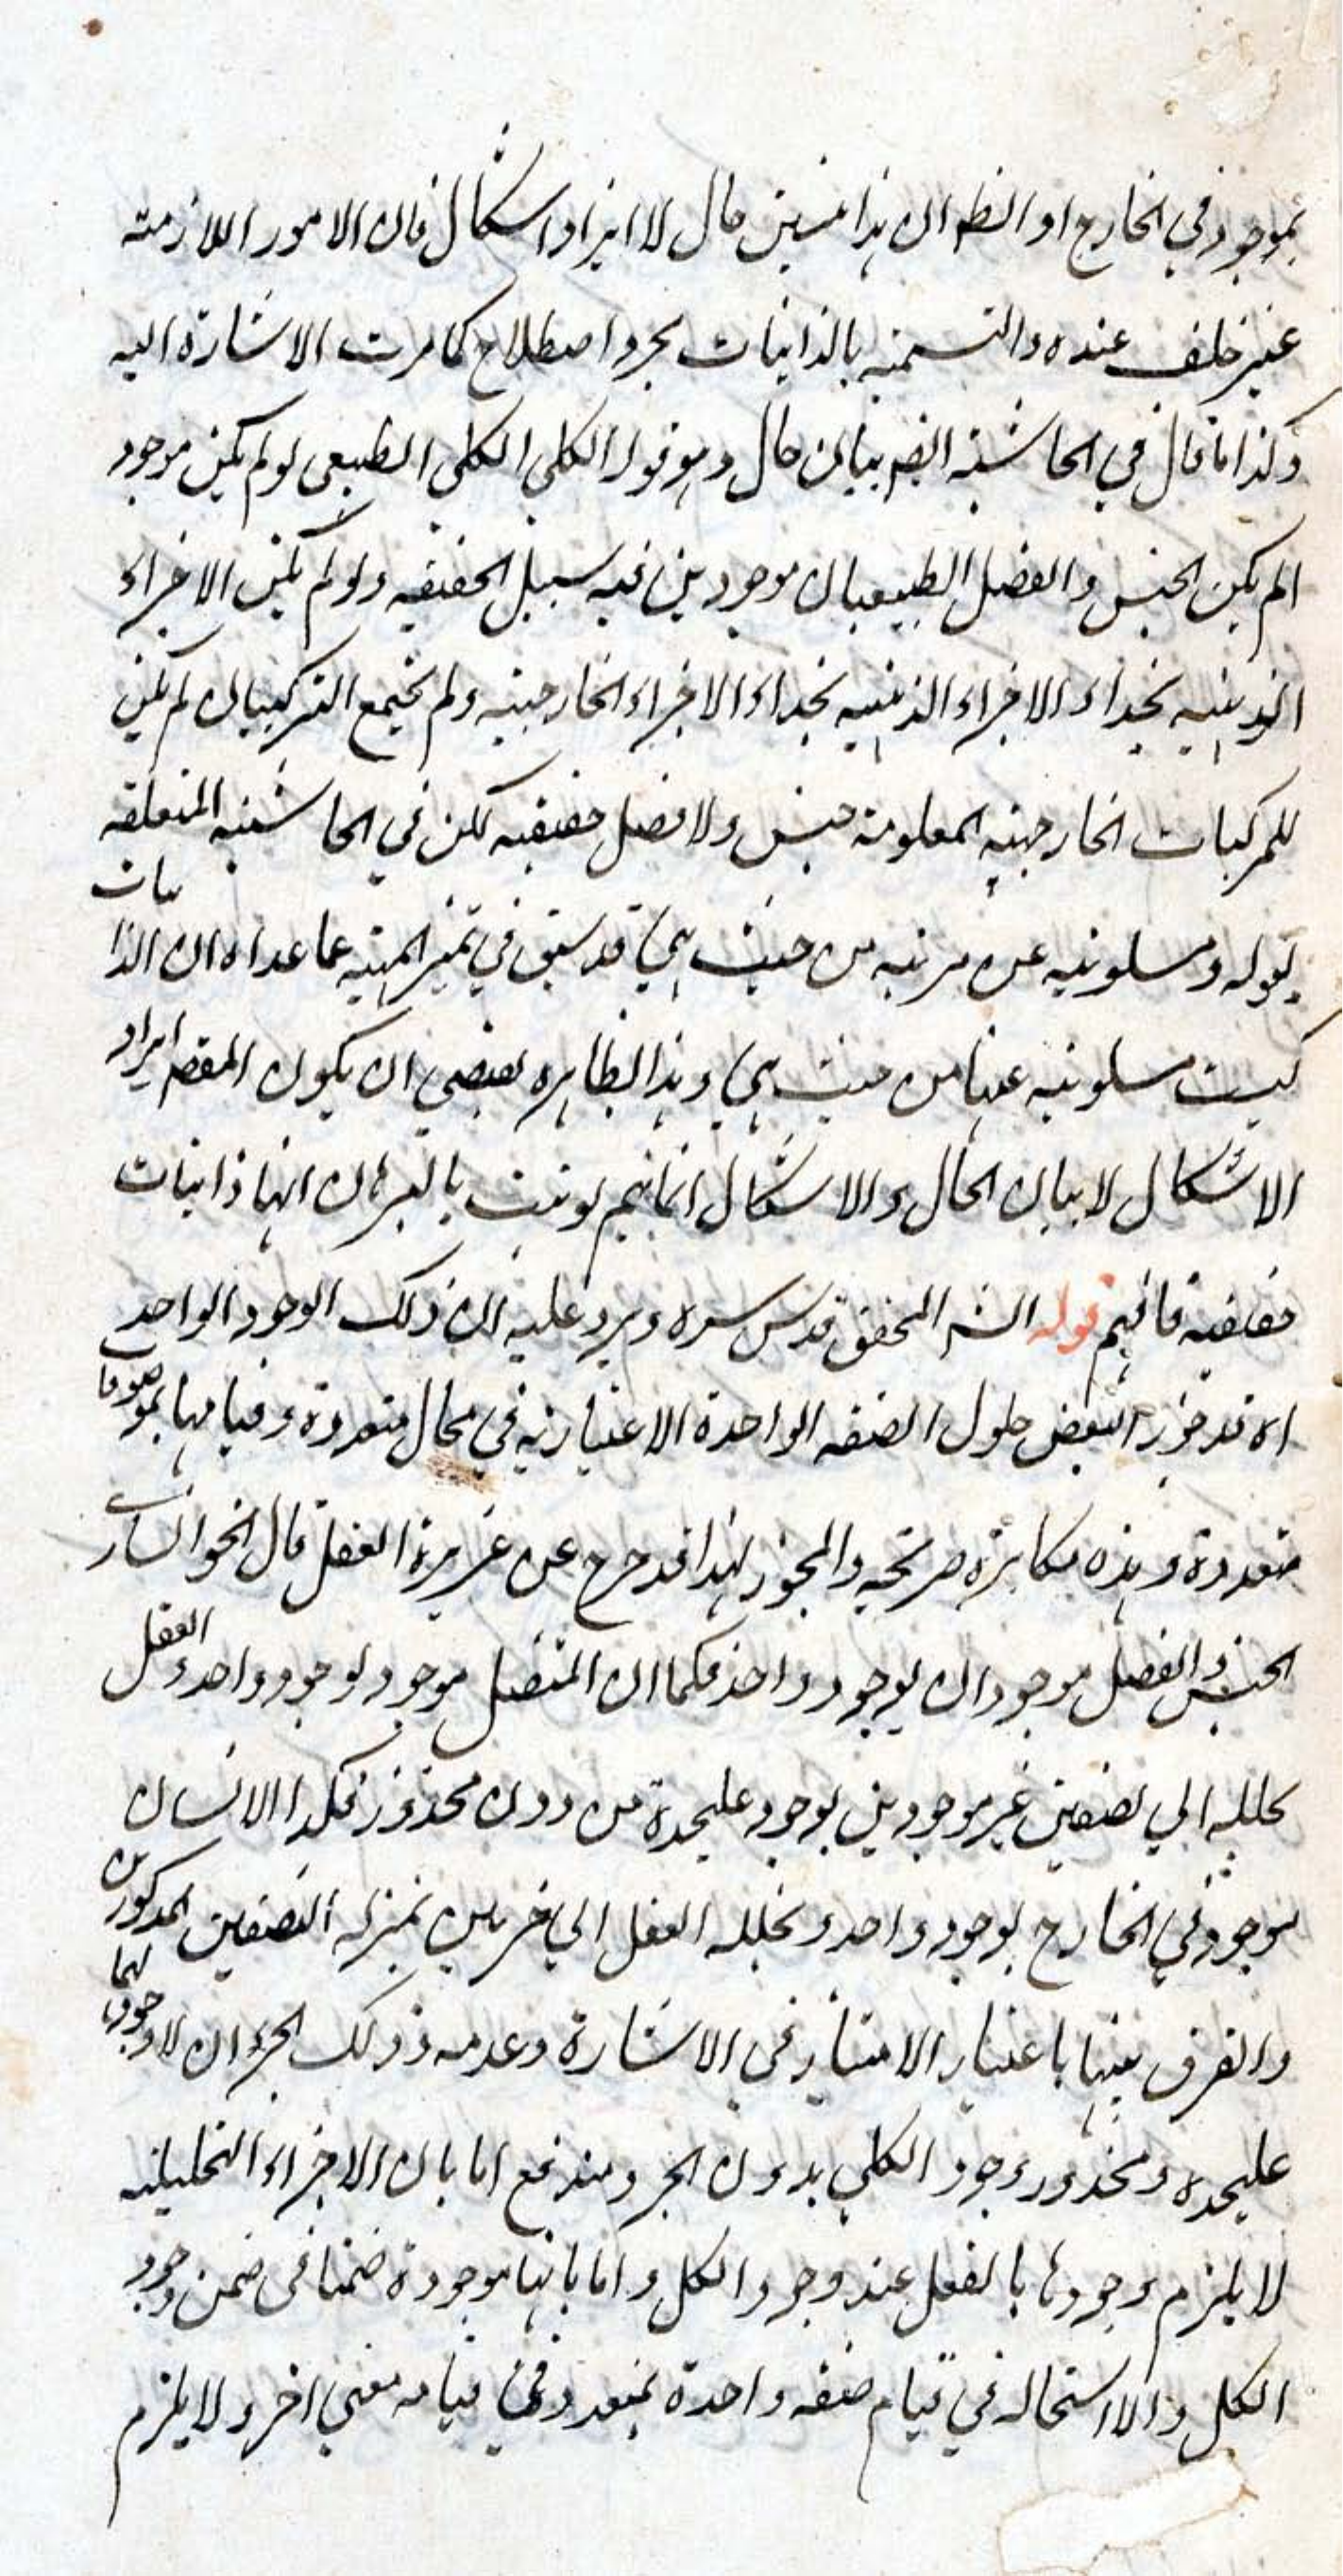 بموجود في الخارج او النظ ان هذا تبيين حال لا ايراد اشكال فان الامور اللازمة
غير خلف عنده والتسمية بالذاتيات مجرد اصطلاح كما مرت الاشارة اليه
وكذا ما قال في الحاشية ايضه بيان حال وهو قوله الكلي الكلي الطبيعي لو لم يكن موجود
الم يكن الجنس والفصل الطبيعيان موجودين علے سبيل الحقيقه ولو لم يكن الاجزاء
الذهنيه بحذاء الاجزاء الذهنيه بحذاء الاجزاء الخارجيه ولم يجتمع التركيبان لم يكن
للمركبات الخارجيه المعلومة جنس ولا فصل حقيقيه لكن في الحاشيه المتعلقه
بقوله ومسلوبيه عن مرتبه من حيث هي قد سبق في تميز المهيه عما عداه ان الذاتيات
ليست مسلوبيه عنها من حيث هي وهذا بظاهره يقتضي ان يكون المقصه ايراد
الاشكال لا بيان الحال والاشكال انما يتم لو ثبت بالبرهان انها ذاتيات
حقيقية فافهم قوله الشه المحقق قدس سره ويرد عليه ان ذلك الوجود الواحد
اه قد جوز البعض حلول الصفه الواحدة الاعتباريه في محال متعددة وقيامها بموصوفات
متعددة وهذه مكابرة صريحه والمجوز لهذا قد خرج عن غريزة العقل قال الخوانساري
الجنس والفصل موجودان بوجود واحد فكما ان المتصل موجود بوجود واحد والعقل
يحلله الي نصفين غير موجودين بوجود عليحدة من دون محذور فكذا الانسان
موجود في الخارج بوجود واحد ويحلله العقل الي جزءين بمنزله النصفين المذكورين
والفرق بينهما باعتبار الامتياز في الاشارة وعدمه وذلك الجزءان لا وجود لهما
عليحده ومحذور وجود الكلي بدون الجزء مندفع اما بان الاجزاء التحليليه
لا يلزم وجودها بالفعل عند وجود الكل و اما بانها موجودة ضمنا في ضمن وجود
الكل والا استحاله في قيام صفه واحدة بمتعدد وفي قيامه معنى اخر ولا يلزم